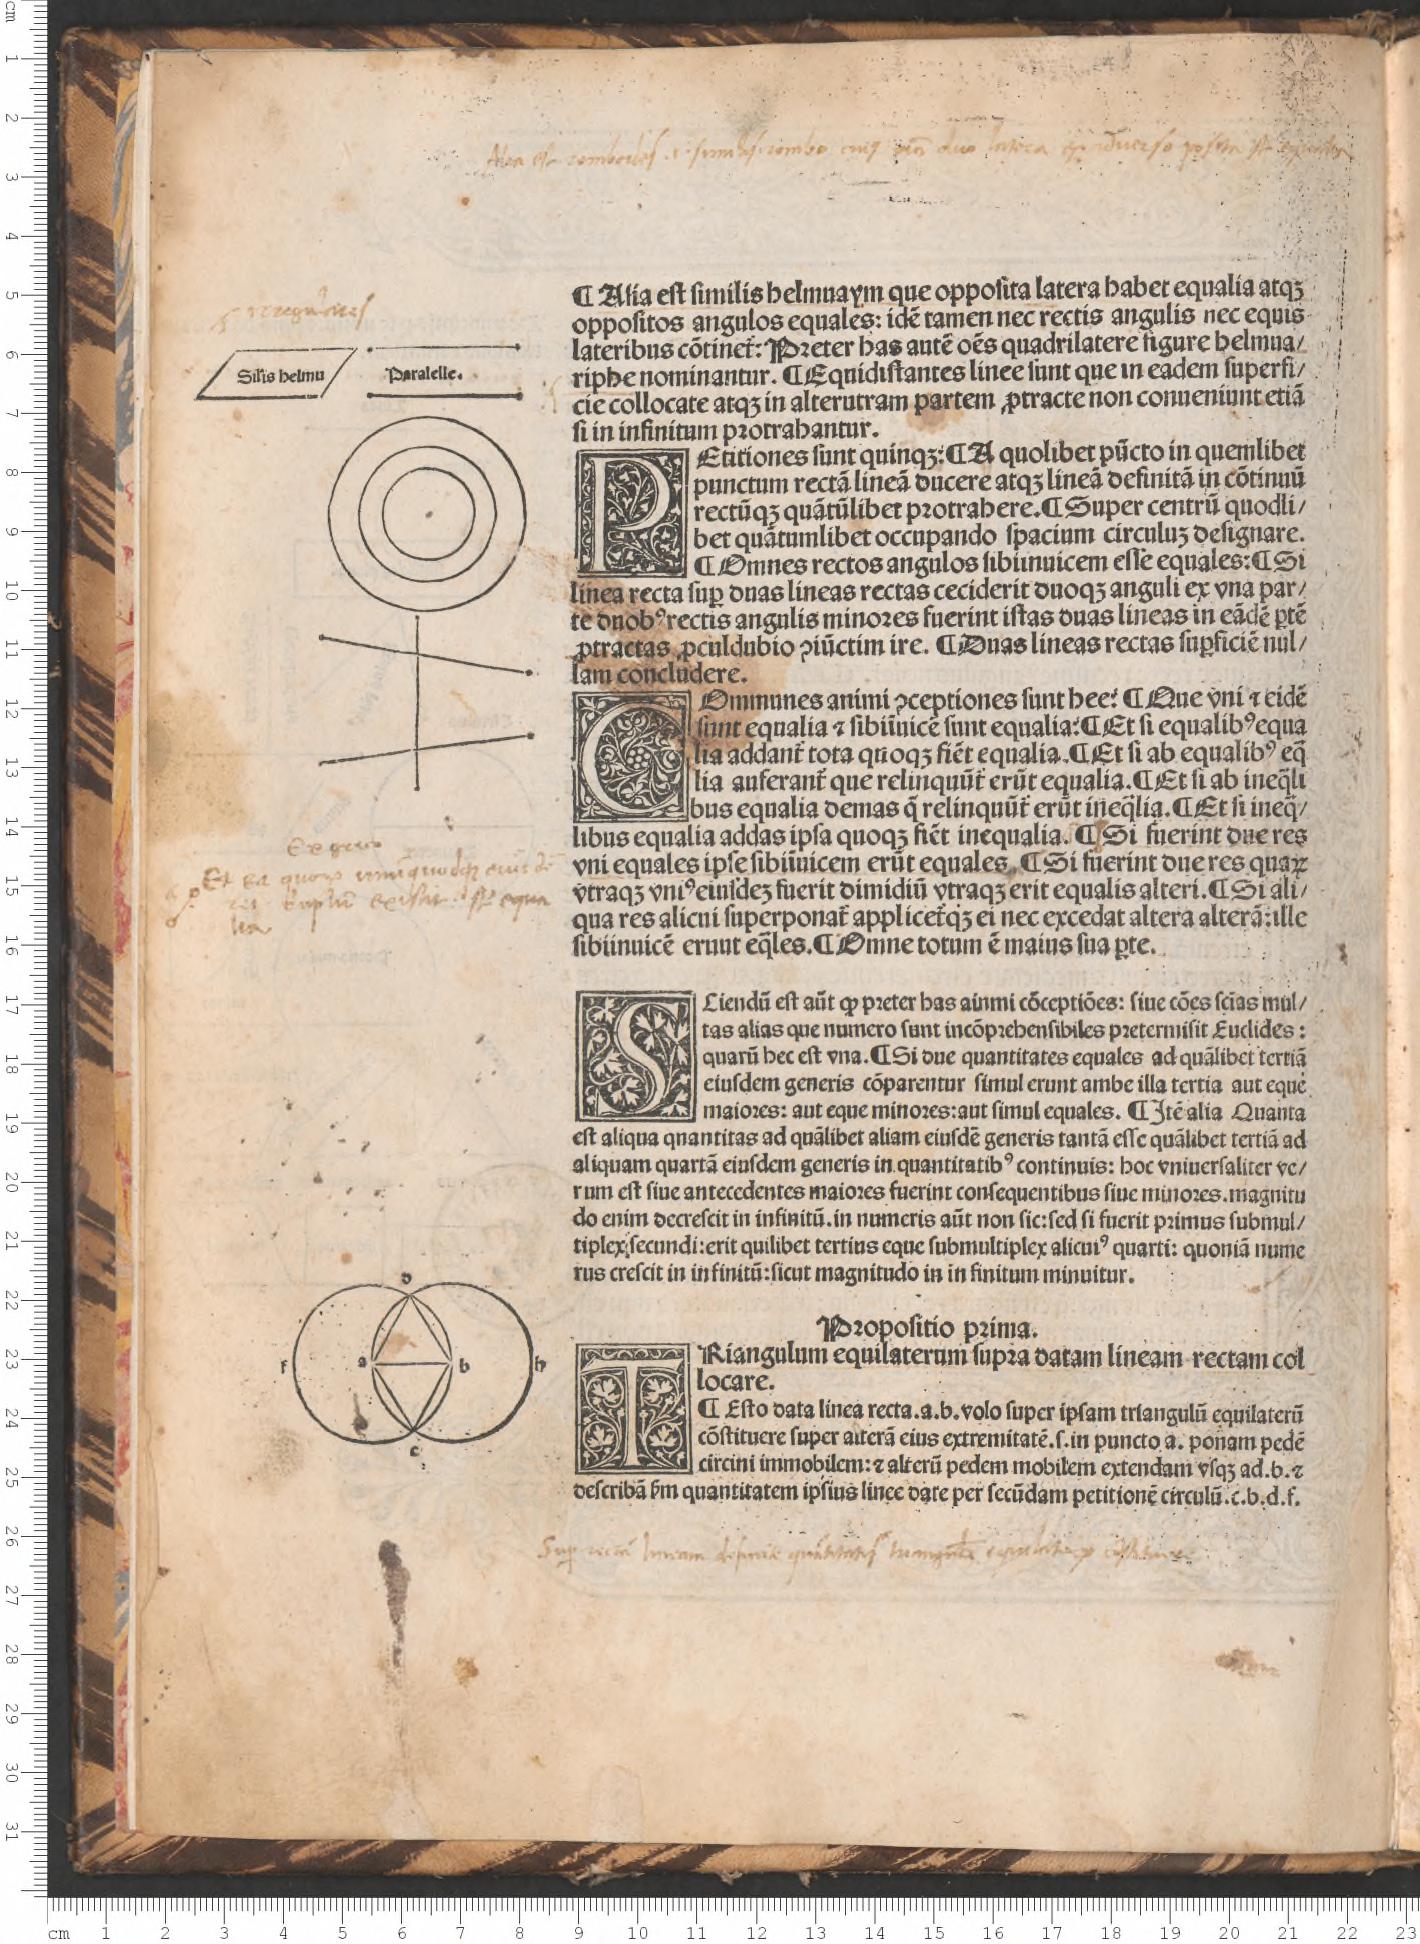 Alia est romboides .i. similis rombo cuius duo latera ex adverso posita
¶ Alia est similis helmuaym que opposita latera habet equalia atqꝫ
oppositos angulos equales: idē tamen nec rectis angulis nec equis
lateribus cōtinet̄: Preter has autē oēs quadrilatere figure helmua/
riphe nominantur. ¶ Equidistantes linee sunt que in eadem superfi/
cie collocate atqꝫ in alterutram partem ꝓtracte non conueniunt etiā
si in infinitum protrahantur.
Silis helmu
Paralelle.
PEtitiones sunt quinqꝫ: ¶ A quolibet pūcto in quemlibet
punctum rectā lineā ducere atqꝫ lineā definitā in cōtinuū
rectūqꝫ quātūlibet protrahere. ¶ Super centrū quodli/
bet quātumlibet occupando spacium circuluꝫ designare.
¶ Omnes rectos angulos sibiinuicem esse equales: ¶ Si
linea recta suꝑ duas lineas rectas ceciderit duoqꝫ anguli ex vna par/
te duobꝰ rectis angulis minores fuerint istas duas lineas in eādē ꝑtē
ꝓtractas ꝓculdubio ꝯiūctim ire. ¶ Duas lineas rectas suꝑficiē nul/
lam concludere.
COmmunes animi ꝯceptiones sunt hee: ¶ Que vni ⁊ eidē
sunt equalia ⁊ sibiīuicē sunt equalia: ¶ Et si equalibꝰ equa
lia addant̄ tota quoqꝫ fiēt equalia. ¶ Et si ab equalibꝰ eq̄
lia auferant̄ que relinquūt̄ erūt equalia. ¶ Et si ab ineq̄li
bus equalia demas q̄ relinquūt̄ erūt ineq̄lia. ¶ Et si ineq̄/
libus equalia addas ipsa quoqꝫ fiēt inequalia. ¶ Si fuerint due res
vni equales ipse sibiīuicem erūt equales. ¶ Si fuerint due res quaꝝ
vtraqꝫ vniꝰ eiusdeꝫ fuerit dimidiū vtraqꝫ erit equalis alteri. ¶ Si ali/
qua res alicui superponat̄ applicet̄qꝫ ei nec excedat altera alterā: ille
sibiinuicē erunt eq̄les. ¶ Omne totum ē maius sua ꝑte.
SCiendū est aūt ꝙ preter has ainmi cōceptiōes: siue cōes scīas mul/
tas alias que numero sunt incōprehensibiles pretermisit Euclides:
quarū hec est vna. ¶ Si due quantitates equales ad quālibet tertiā
eiusdem generis cōparentur simul erunt ambe illa tertia aut eque
maiores: aut eque minores: aut simul equales. ¶ Itē alia Quanta
est aliqua qnantitas ad quālibet aliam eiusdē generis tantā esse quālibet tertiā ad
aliquam quartā eiusdem generis in quantitatibꝰ continuis: hoc vniuersaliter ve/
rum est siue antecedentes maiores fuerint consequentibus siue minores. magnitu
do enim decrescit in infinitū. in numeris aūt non sic: sed si fuerit primus submul/
tiplex secundi: erit quilibet tertius eque submultiplex alicuiꝰ quarti: quoniā nume
rus crescit in infinitū: sicut magnitudo in infinitum minuitur.
Propositio prima.
TRiangulum equilaterum supra datam lineam rectam col
locare.
¶ Esto data linea recta .a.b. volo super ipsam triangulū equilaterū
cōstituere super alterā eius extremitatē .s. in puncto a. ponam pedē
circini immobilem: ⁊ alterū pedem mobilem extendam vsqꝫ ad .b. ⁊
describā ẜm quantitatem ipsius linee date per secūdam petitionē circulū .c.b.d.f.
d
f a b h
c